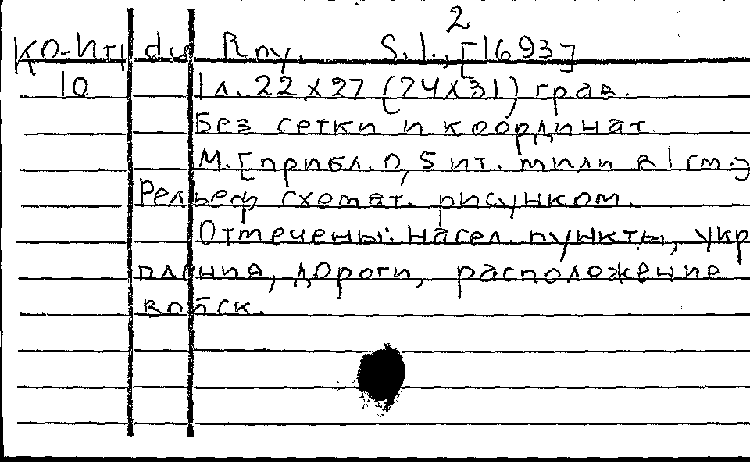 2
Ко-Итl du Roy. S.l., [1693]
10 1 л. 22 х 27 (24х31) грав.
Без сетки и координат.
М. [прибл. 0,5 ит. мили в 1 см.]
Рельеф схемат. рисунком.
Отмечены: насел. пункты, укр
пления, дороги, расположение
войск.